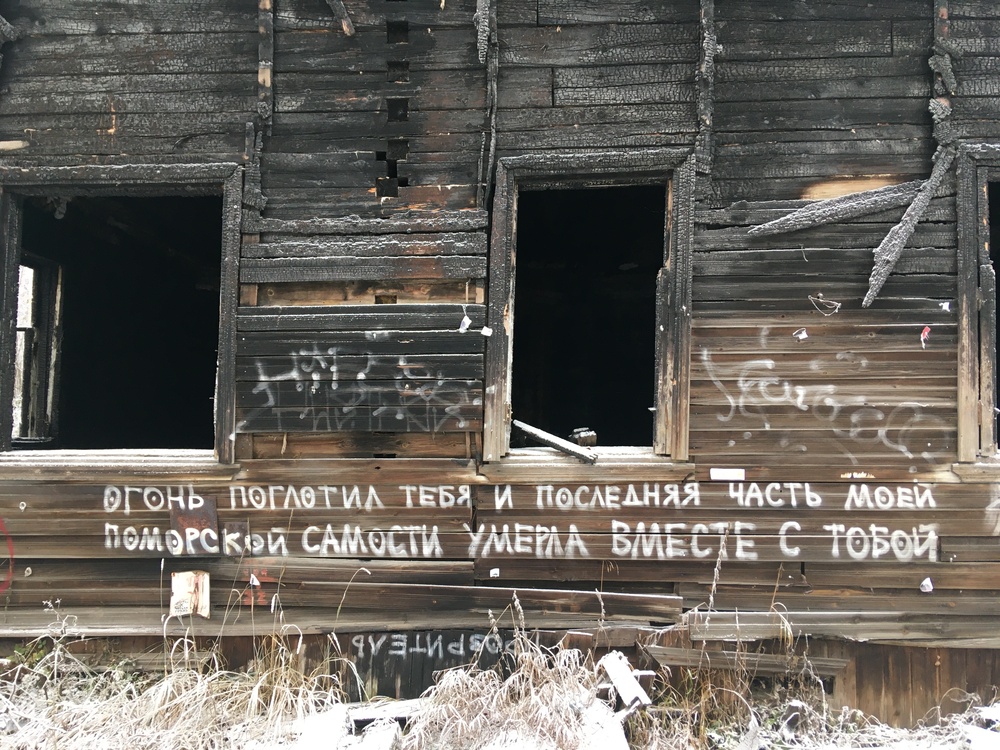 ОГОНЬ ПОГЛОТИЛ ТЕБЯ И ПОСЛЕДНЯЯ ЧАСТЬ МОЕЙ
ПОМОРСКОЙ САМОСТИ УМЕРЛА ВМЕСТЕ С ТОБОЙ